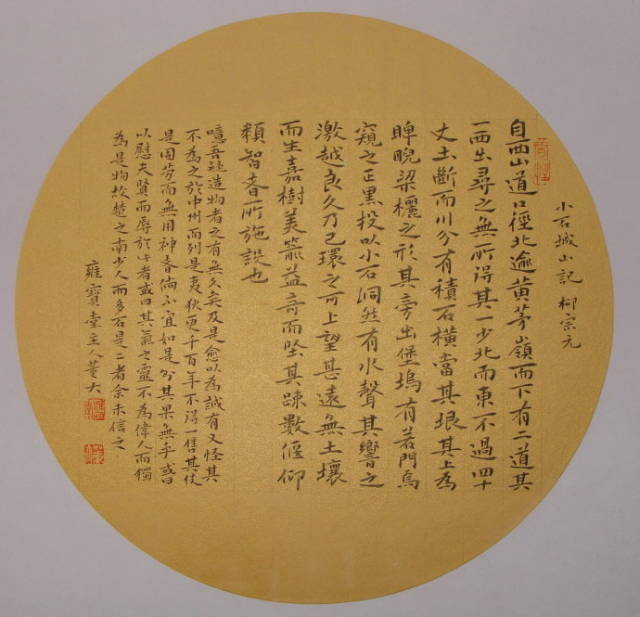 小石城山記 柳宗元
自西山道口徑北逾黃茅嶺而下有二道其
一西出尋之無所得其一少北而東不過四十
丈土斷而川分有積石橫當其垠其上為
睥睨梁欐之形其旁出堡塢有若門焉
窺之正黑投以小石洞然有水聲其響之
激越良久乃已環之可上望甚遠無土壤
而生嘉樹美箭益奇而堅其疎數偃仰
類智者所施設也
噫吾疑造物者之有無久矣及是愈以為誠有又怪其
不為之於中州而列是夷狄更千百年不得一售其伎
是固勞而無用神者倘不宜如是則其果無乎或曰
以慰夫賢而辱於此者或曰其氣之靈不為偉人而獨
為是物故楚之南少人而多石是二者余未信之
雍寶堂主人董大